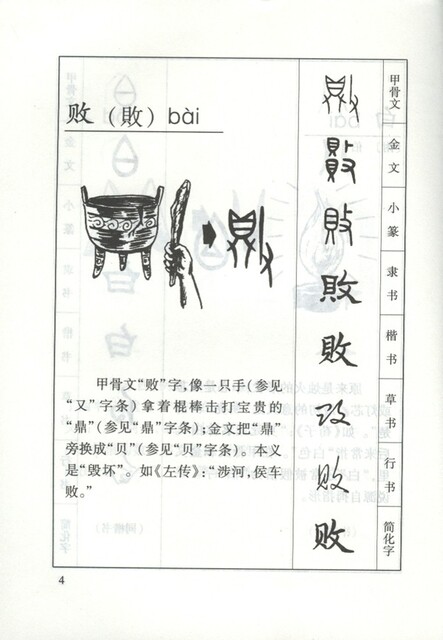 败（敗）bài
甲骨文“败”字，像一只手（参见
“又”字条）拿着棍棒击打宝贵的
“鼎”（参见“鼎”字条）；金文把“鼎”
旁换成“贝”（参见“贝”字条）。本义
是“毁坏”。如《左传》：“涉河，侯车
败。”
甲骨文
金文
小篆
隶书
楷书
草书
行书
简化字
敗
敗
败
败
4